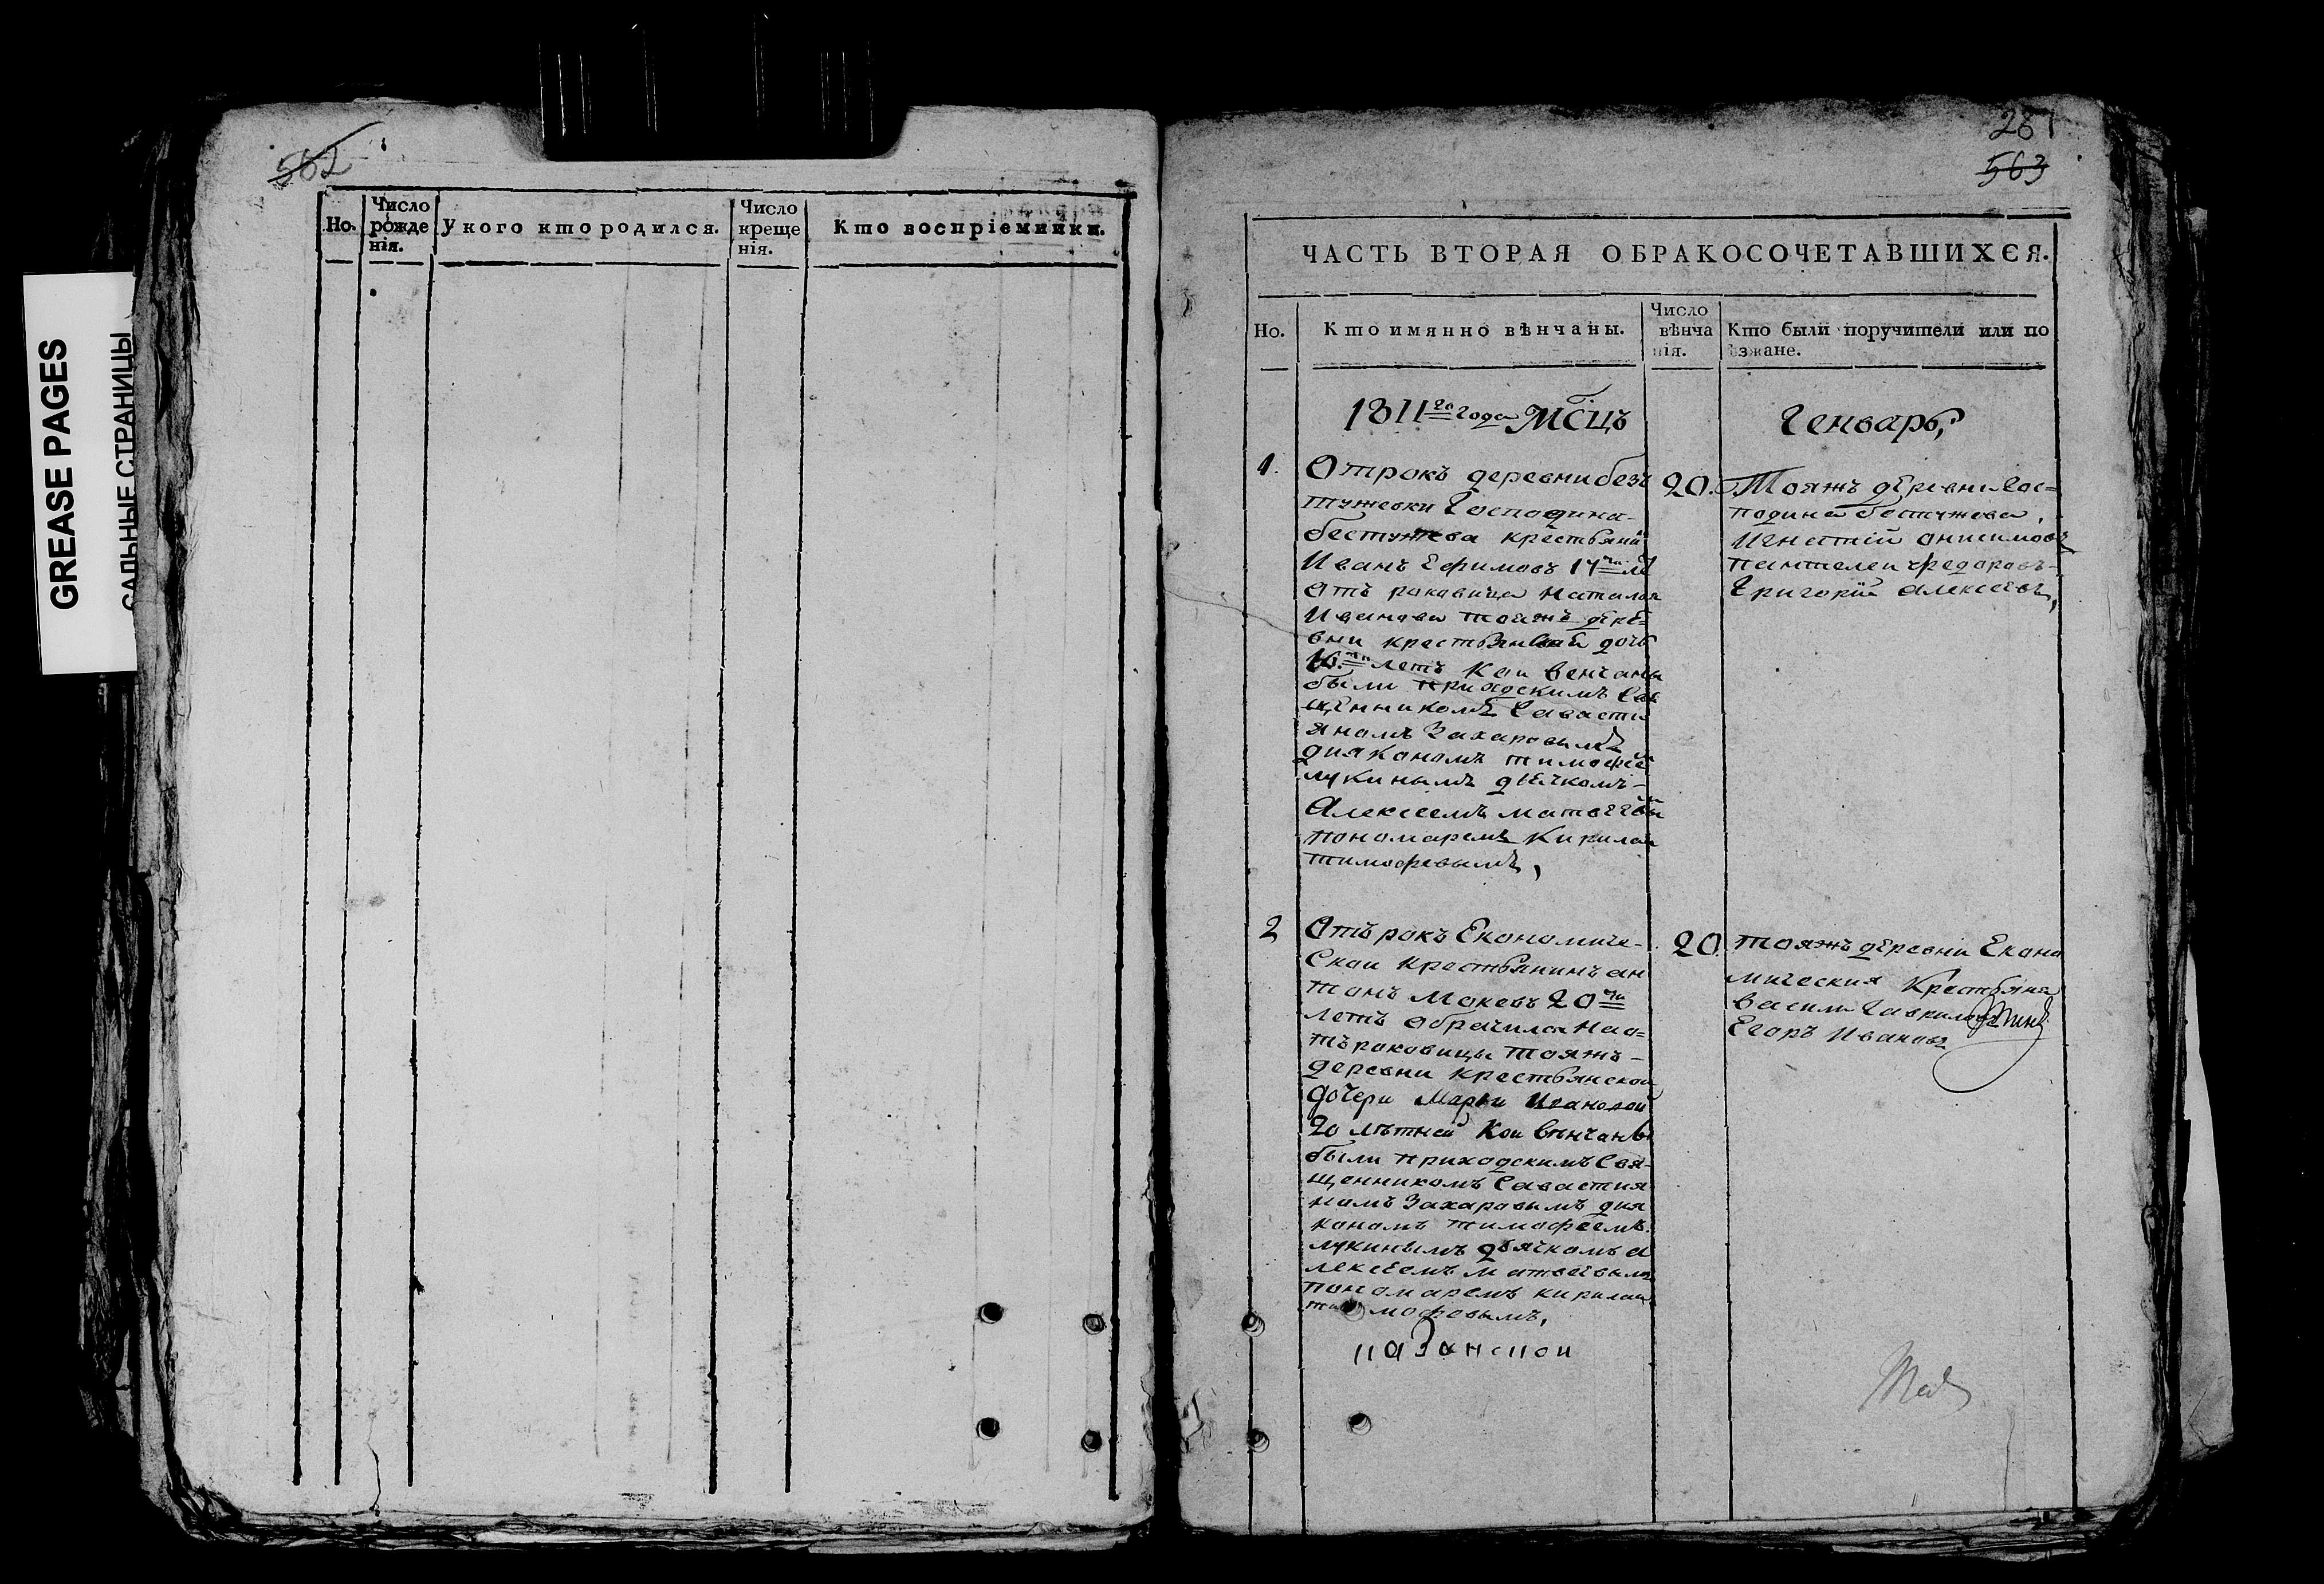 GREASE PAGES
САЛЬНЫЕ СТРАНИЦЫ
562
Но.
Число рожденія.
У кого кто родился.
Число крещенія.
Кто воспріемники.
281
563
ЧАСТЬ ВТОРАЯ ОБРАКОСОЧЕТАВШИХСЯ.
Но.
Кто имянно вѣнчаны.
Число
вѣнча
нія.
Кто были поручители или по
ѣзжане.
1811го года Мсцъ
Генварь,
1.
Отрокъ деревни без
тужевки Господина
бестужева крестьяни
Иванъ Ефимовъ 17ти ле
отъ роковица наталья
Иванова тояжъ дере
вни крестьянская дочь
16ти летъ кои венчаны
были приходскимъ Свя
щенникомъ Савасти
яномъ Захаровымъ
дияконамъ тимофее
лукинымъ дьячкомъ
Алексеемъ матвеевы
пономаремъ Кирилой
тимофевымъ,
20.
Тояжъ деревни Гос=
подина бестужева,
Игнатий онисимовъ
пантелеи федоровъ
Григорий алексеевъ,
2
Отърокъ Економиче-
Скои крестьянинъ ан
тонъ Мокевъ 20ти
летъ обрачился нао=
търоковицы тояжъ
деревни крестьянской
дочери Марьи Ивановой
20 лѣтней кои вѣнчаны
были приходскимъ Свя
щенникомъ Савастия
номъ Захаровымъ дия
кономъ тимофеемъ
лукинымъ дьячкомъ а
лексеемъ матвевымъ
пономаремъ кирилой
тимофевымъ,
20.
тояжъ деревни Екано
мическия Крестьяня
васили гавриловъ
Егоръ Ивановъ